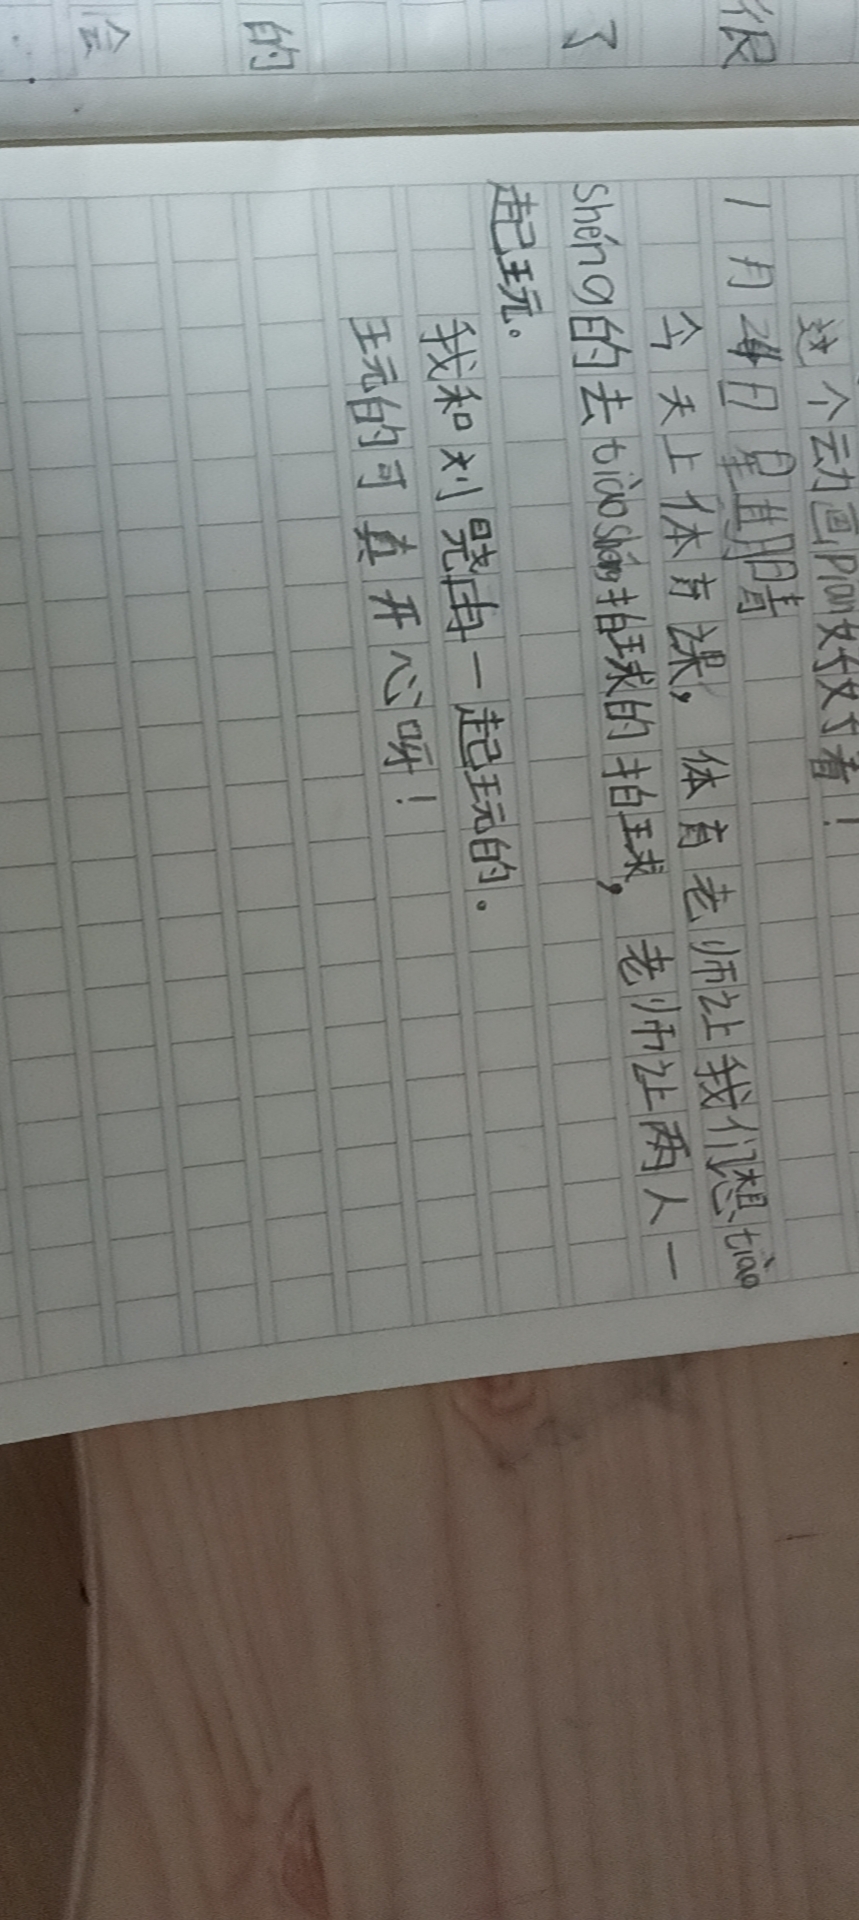 这个动画pian好好看！
1月4日 星期 晴
今天上体育课，体育老师让我们想tiào
shéng的去tiàoshéng拍球的拍球，老师让两人一
起玩。
我和刘 一起玩的。
玩的可真开心呀！
很
了
的
会